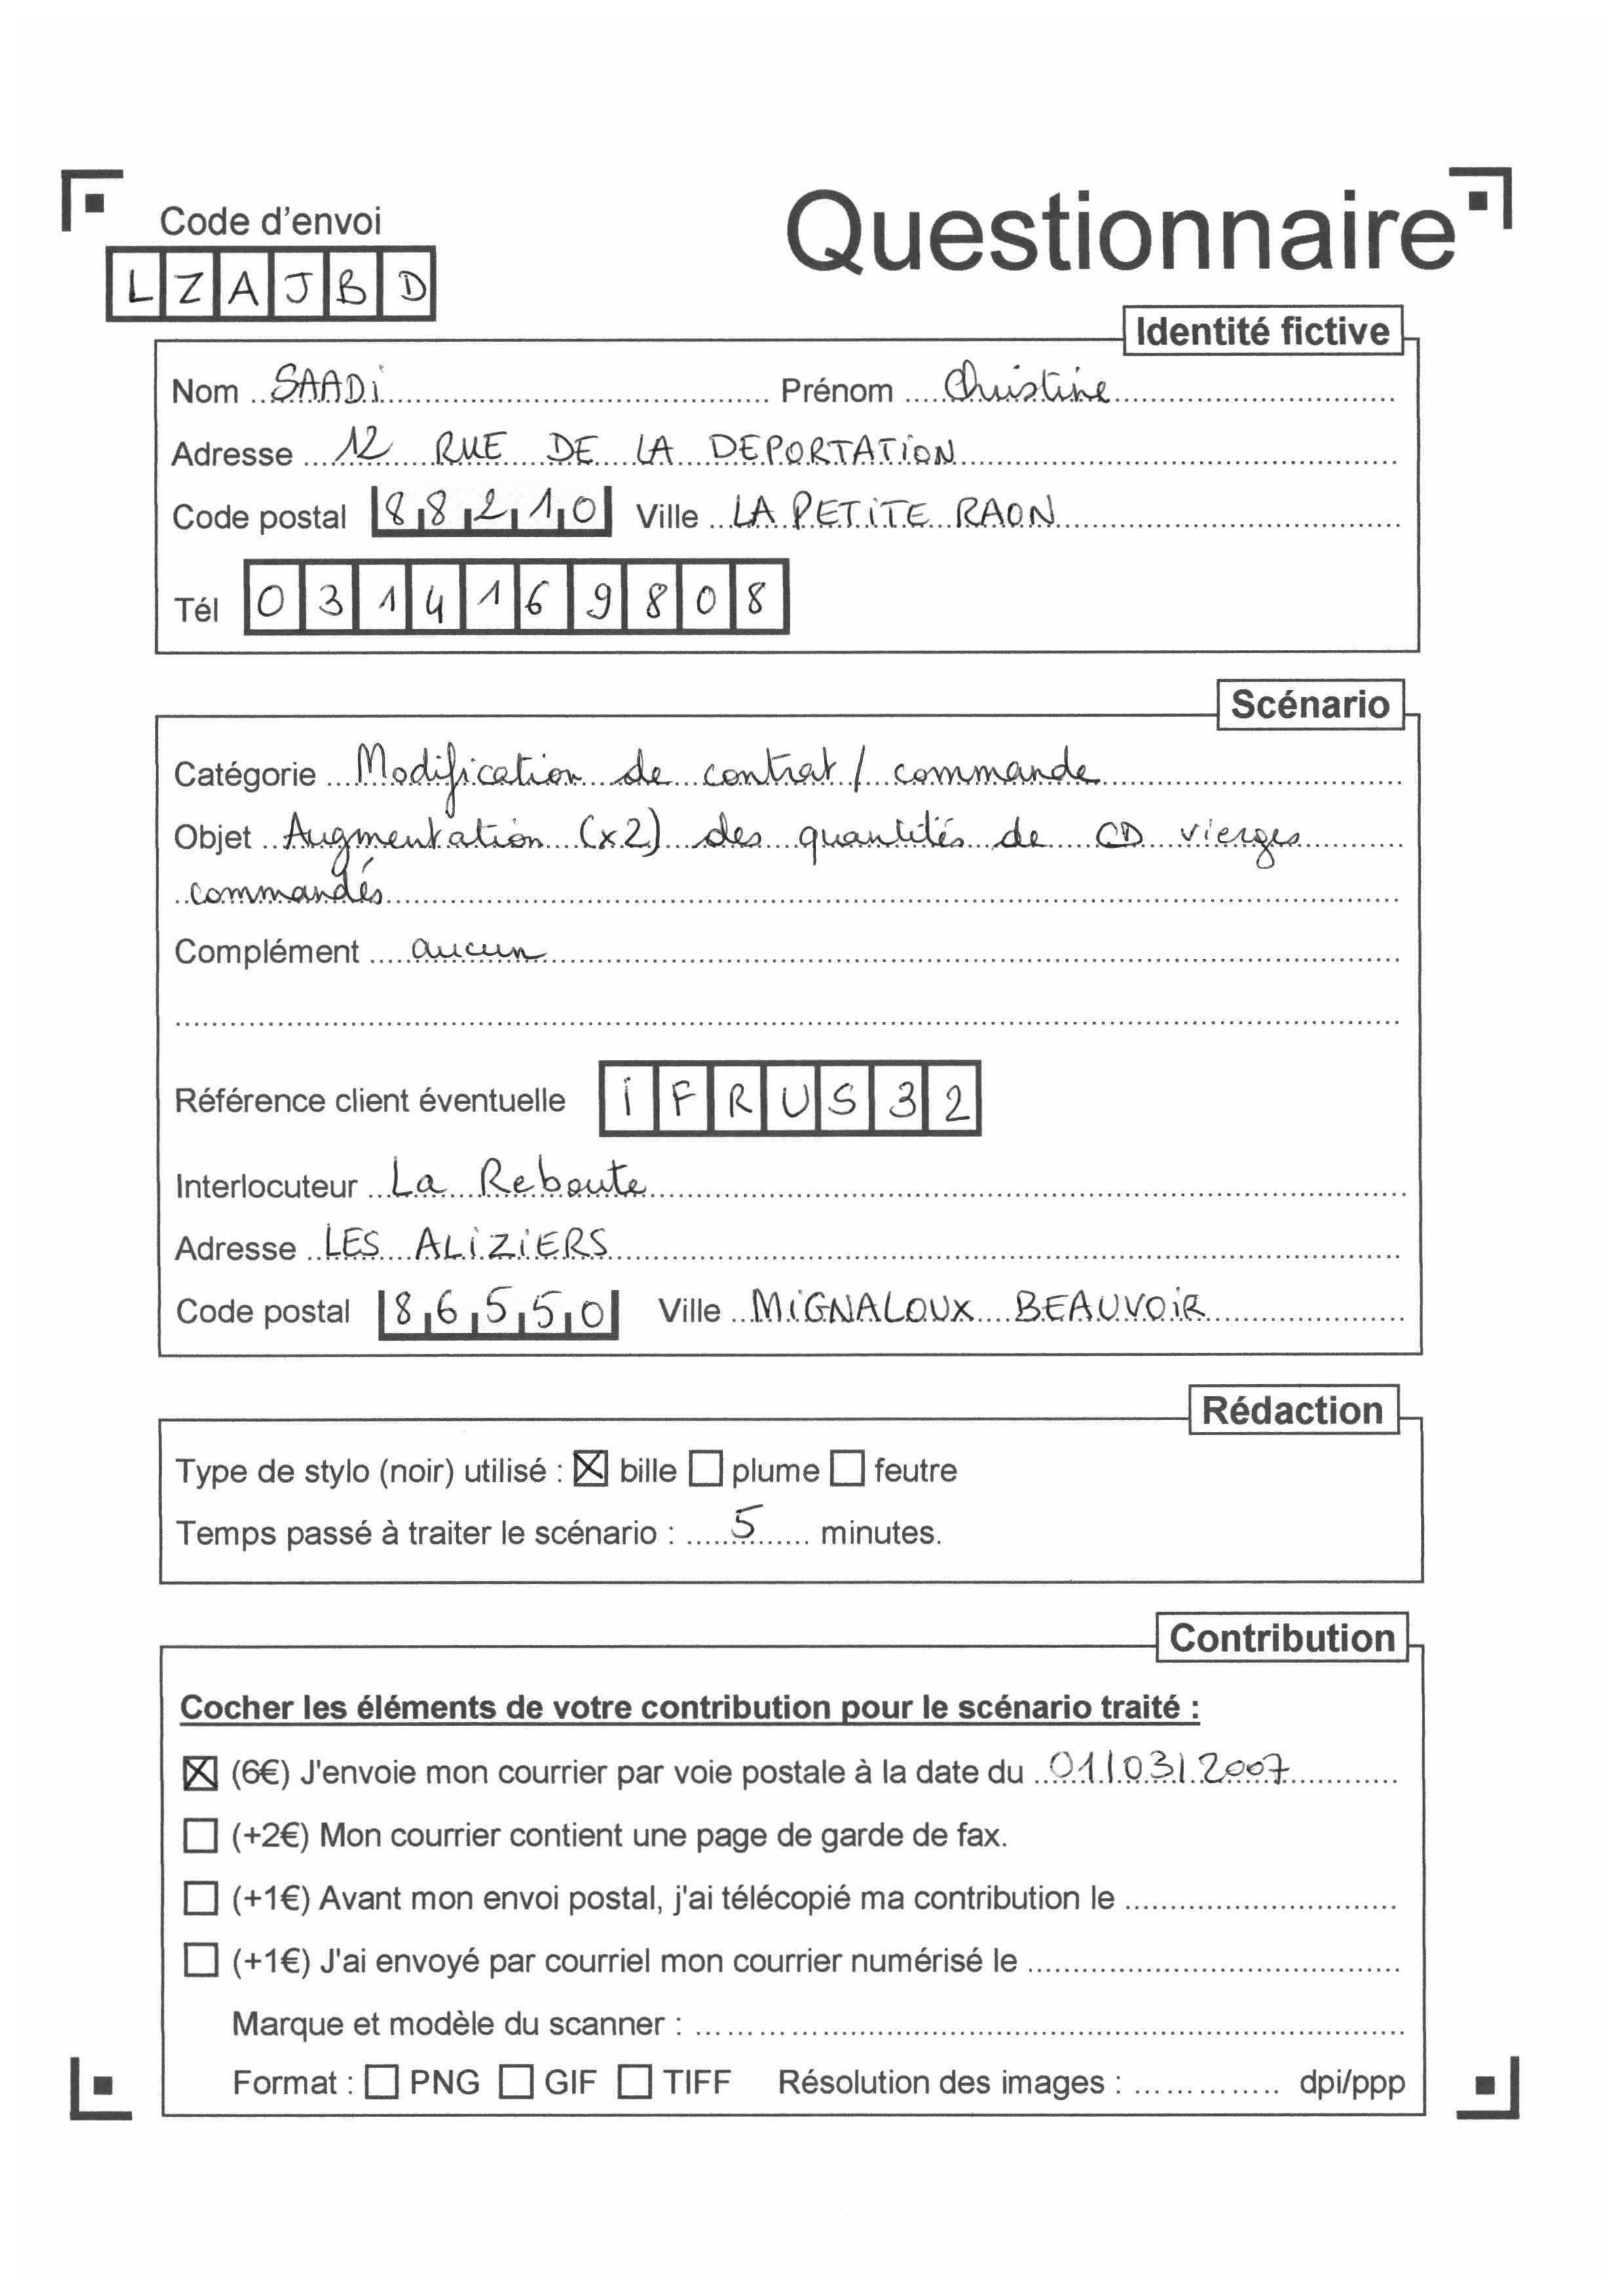 Code d'envoi
Questionnaire
LZAJBD
Identité fictive
Nom SAADI Prénom Christine
Adresse 12 RUE DE LA DEPORTATION
Code postal 88210 Ville LA PETITE RAON
Tél 0314169808
Scénario
Catégorie Modification de contrat / commande
Objet Augmentation (x2) des quantités de CD vierges
commandés
Complément aucun
Référence client éventuelle IFRUS32
Interlocuteur La Reboute
Adresse LES ALIZIERS
Code postal 86550 Ville MIGNALOUX BEAUVOIR
Rédaction
Type de stylo (noir) utilisé : ☒ bille ☐ plume ☐ feutre
Temps passé à traiter le scénario : 5 minutes.
Contribution
Cocher les éléments de votre contribution pour le scénario traité :
☒ (6€) J'envoie mon courrier par voie postale à la date du 01/03/2007
☐ (+2€) Mon courrier contient une page de garde de fax.
☐ (+1€) Avant mon envoi postal, j'ai télécopié ma contribution le
☐ (+1€) J'ai envoyé par courriel mon courrier numérisé le
Marque et modèle du scanner :
Format : ☐ PNG ☐ GIF ☐ TIFF Résolution des images : dpi/ppp